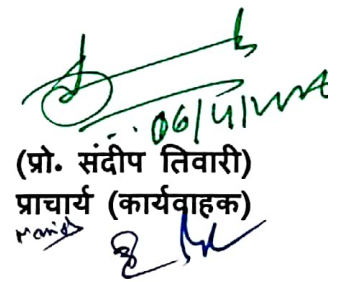 06/11/
(प्रो. संदीप तिवारी)
प्राचार्य (कार्यवाहक)
Manish